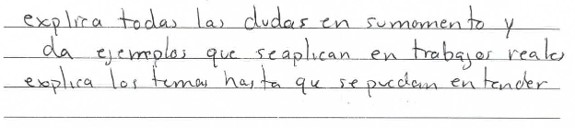 explica todas las dudas en sumomento y
da ejemplos que seaplican en trabajos reales
explica los temas hasta qu se puedan entender